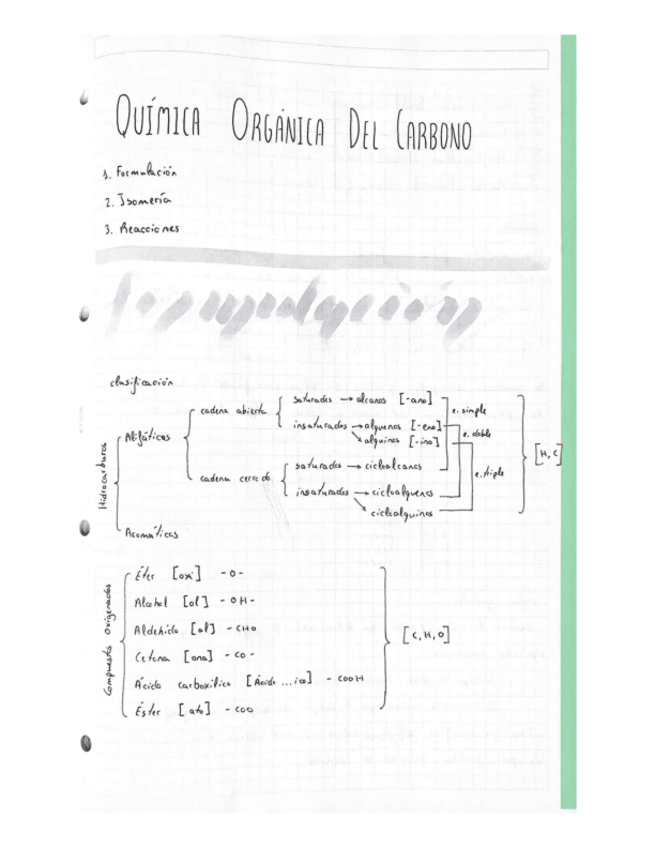 QUÍMICA ORGÁNICA DEL CARBONO
1. Formulación
2. Isomería
3. Reacciones
Formulación
clasificación
Hidrocarburos
Alifáticos
cadena abierta
saturados → alcanos [-ano]
insaturados → alquenos [-eno]
alquinos [-ino]
cadena cerrada
saturados → cicloalcanos
insaturados → cicloalquenos
cicloalquinos
e. simple
e. doble
e. triple
[H, C]
Aromáticos
Compuestos Origenados
Éter [oxi] -O-
Alcohol [ol] -OH-
Aldehído [al] -CHO
Cetona [ona] -CO-
Ácido carboxílico [Ácido ...ico] -COOH
Éster [ato] -COO
[C, H, O]